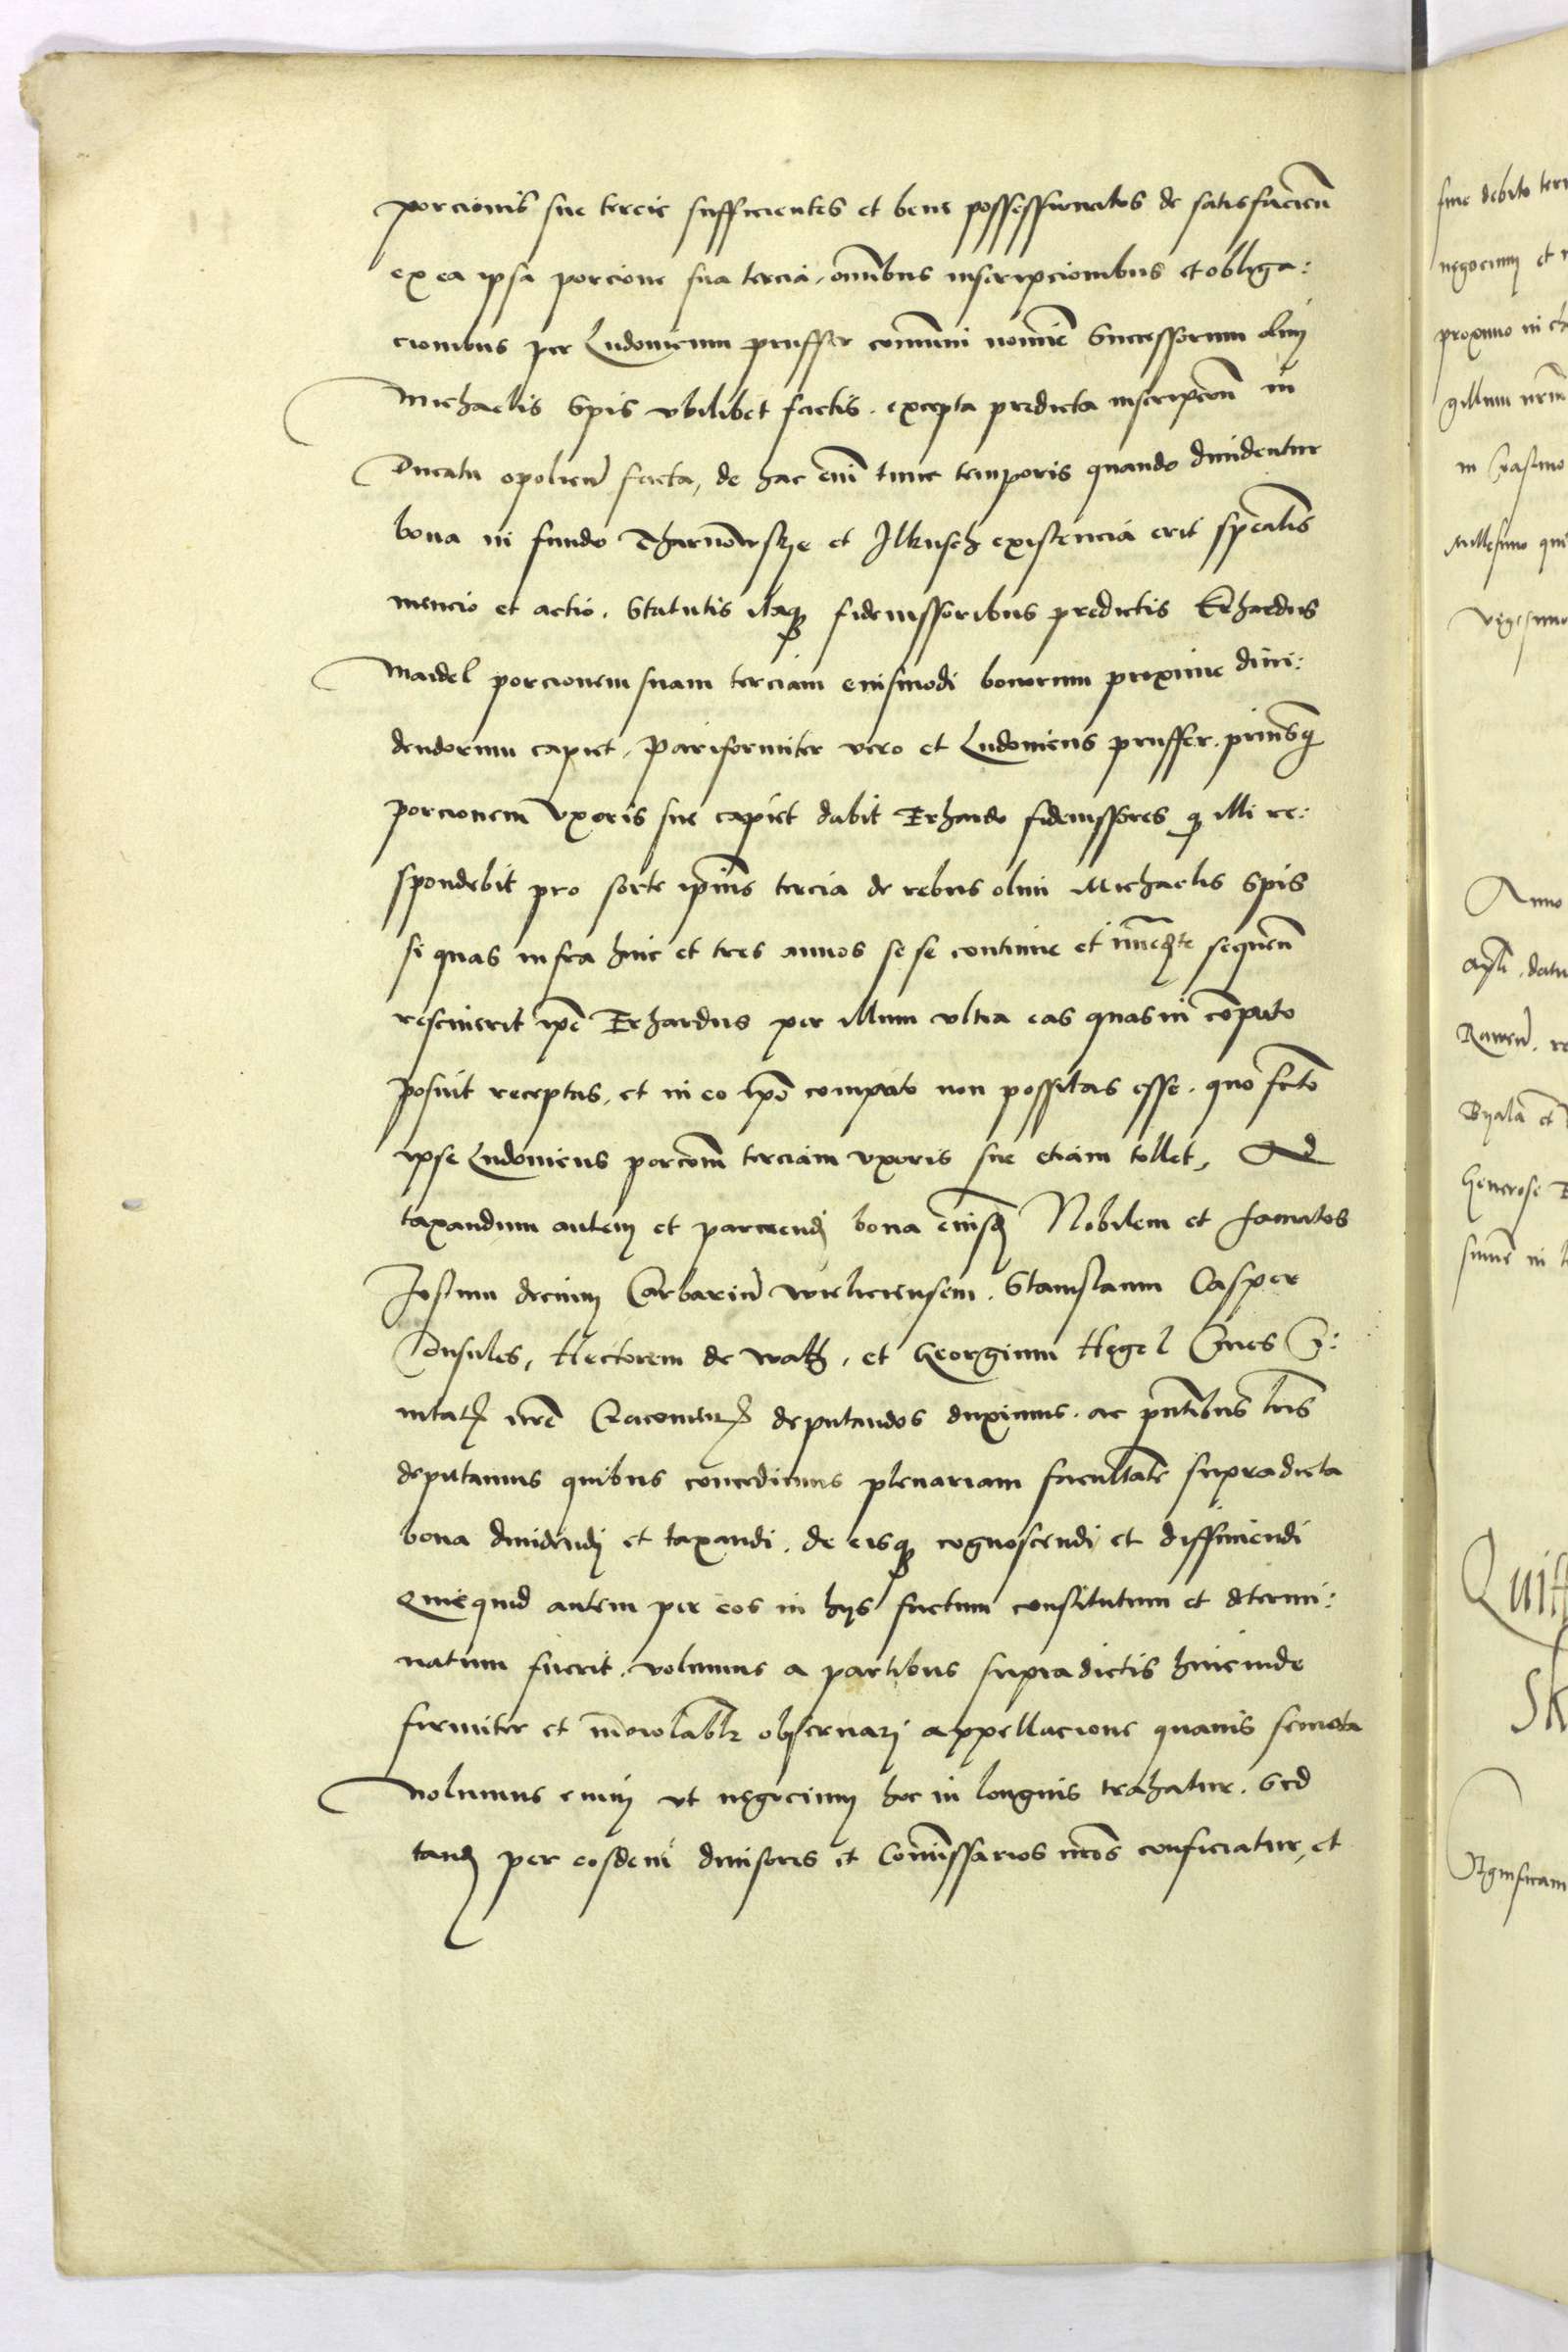 porcionis sue tercie sufficientes et bene possessionatos de satisfaciend
ex ea ipsa porcione sua tercia, omnibus inscripcionibus et obliga:
cionibus per Ludovicum pruffer communi nomine Successorum olim
Michaelis Spis ubilibet factis. excepta predicta inscripcion in
Ducatu opolien facta, de hac eni tunc temporis quando dividentur
bona in fundo Tharnowskye et Ilkusch existencia erit specialis
mencio et actio. Statutis itaque fideiussoribus predictis Erhardus
Maidel porcionem suam terciam eiusmodi bonorum proxime divi:
dendorum capiet. Pariformiter vero et Ludovicus pruffer. priusq
porcionem Uxoris sue capiet dabit Erhardo fideiussores q illi re:
spondebit pro sorte ipsius tercia de rebus olim Michaelis Spis
si quas infra hinc et tres annos se se continue et immediate sequen
resciverit ipe Erhardus per illum ultra eas quas in computo
posuit receptas, et in eo ipo computo non possitas esse. quo facto
ipse Ludovicus porcionem terciam uxoris sue etiam tollet, Ad
taxandum autem et parciendi bona eiusmodi Nobilem et famatos
Jostum decium Carbarium wieliciensem. Stanislaum Casper
Consules, Hectorem de watt, et Georgium Hegel Cives Ci:
vitatis nre Cracoviensis deputandos duximus. ac pntibus lris
deputamus quibus concedimus plenariam facultate supradicta
bona dividendi et taxandi. de eisque cognoscendi et diffiniendi
Quicquid autem per eos in hys factum constitutum et determi:
natum fuerit. volumus a partibus supradictis hincinde
firmiter et inviolabiliter observari appellacione quavis semota
Nolumus enim ut negocium hoc in longius trahatur. Sed
tandem per eosdem divisores et Commissarios nros conficiatur, et
sine debito
negocium et
proximo in
gillum nrm
in
Millesimo
Vigesimo
Anno
datu
Byala et
Generose